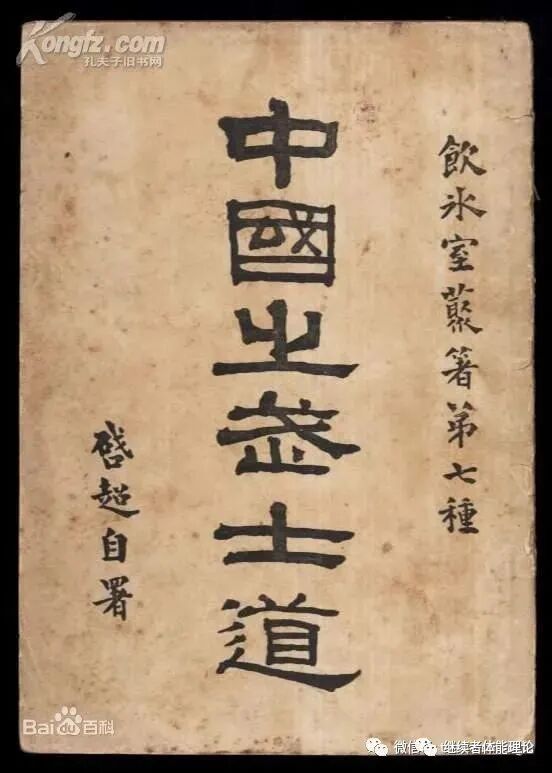 Kongfz.com
孔夫子旧书网
飲氷室叢著第七種
中國之武士道
啓超自署
Bai百科
微信号:继续者体能理论